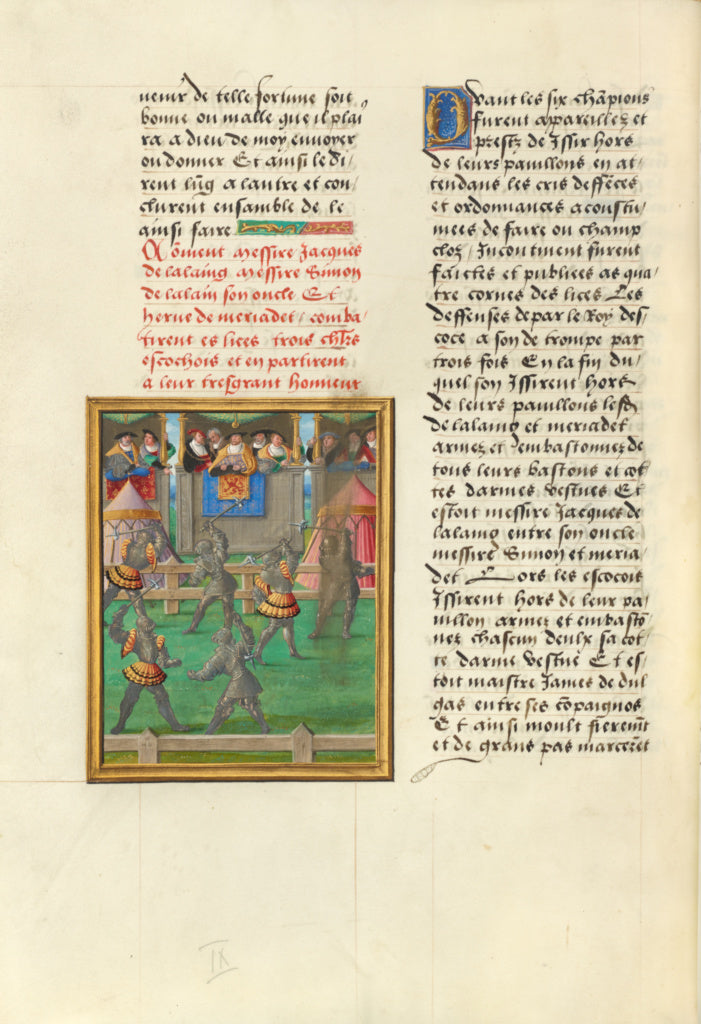 venir de telle fortune soit
bonne ou malle que il plai
ra a dieu de moy envoyer
ou donner Et ainsi le di
rent lūg a lautre et con
clurent ensamble de le
ainsi faire
Cōment messire Jacques
de lalaing messire Simon
de lalain son oncle Et
herve de meriadet comba
tirent es lices trois chlrs
escochois et en partirent
a leur tresgrant honneur
Qvant les six chāpions
furent appareillez et
prestz de Issir hors
de leurs pavillons en at
tendans les cris deffēces
et ordonnances acoustu
mees de faire ou champ
clos Incontinent furent
faictes et publices as qua
tre cornes des lices Les
deffenses de par le Roy des
coce a son de trompe par
trois fois En la fin du
quel son Issirent hors
de leurs pavillons lesd
de lalaing et meriadet
armez et embastonnez de
tous leurs bastons et cot
tes darmes vestues Et
estoit messire Jacques de
lalaing entre son oncle
messire Simon et meria
det Lors les escocois
Issirent hors de leur pa
villon armez et embastō
nez chascun deulx sa cot
te darme vestue Et es
toit maistre James de dul
gas entre ses cōpaignos
Et ainsi moult fieremt
et de grans pas marcerēt
IX